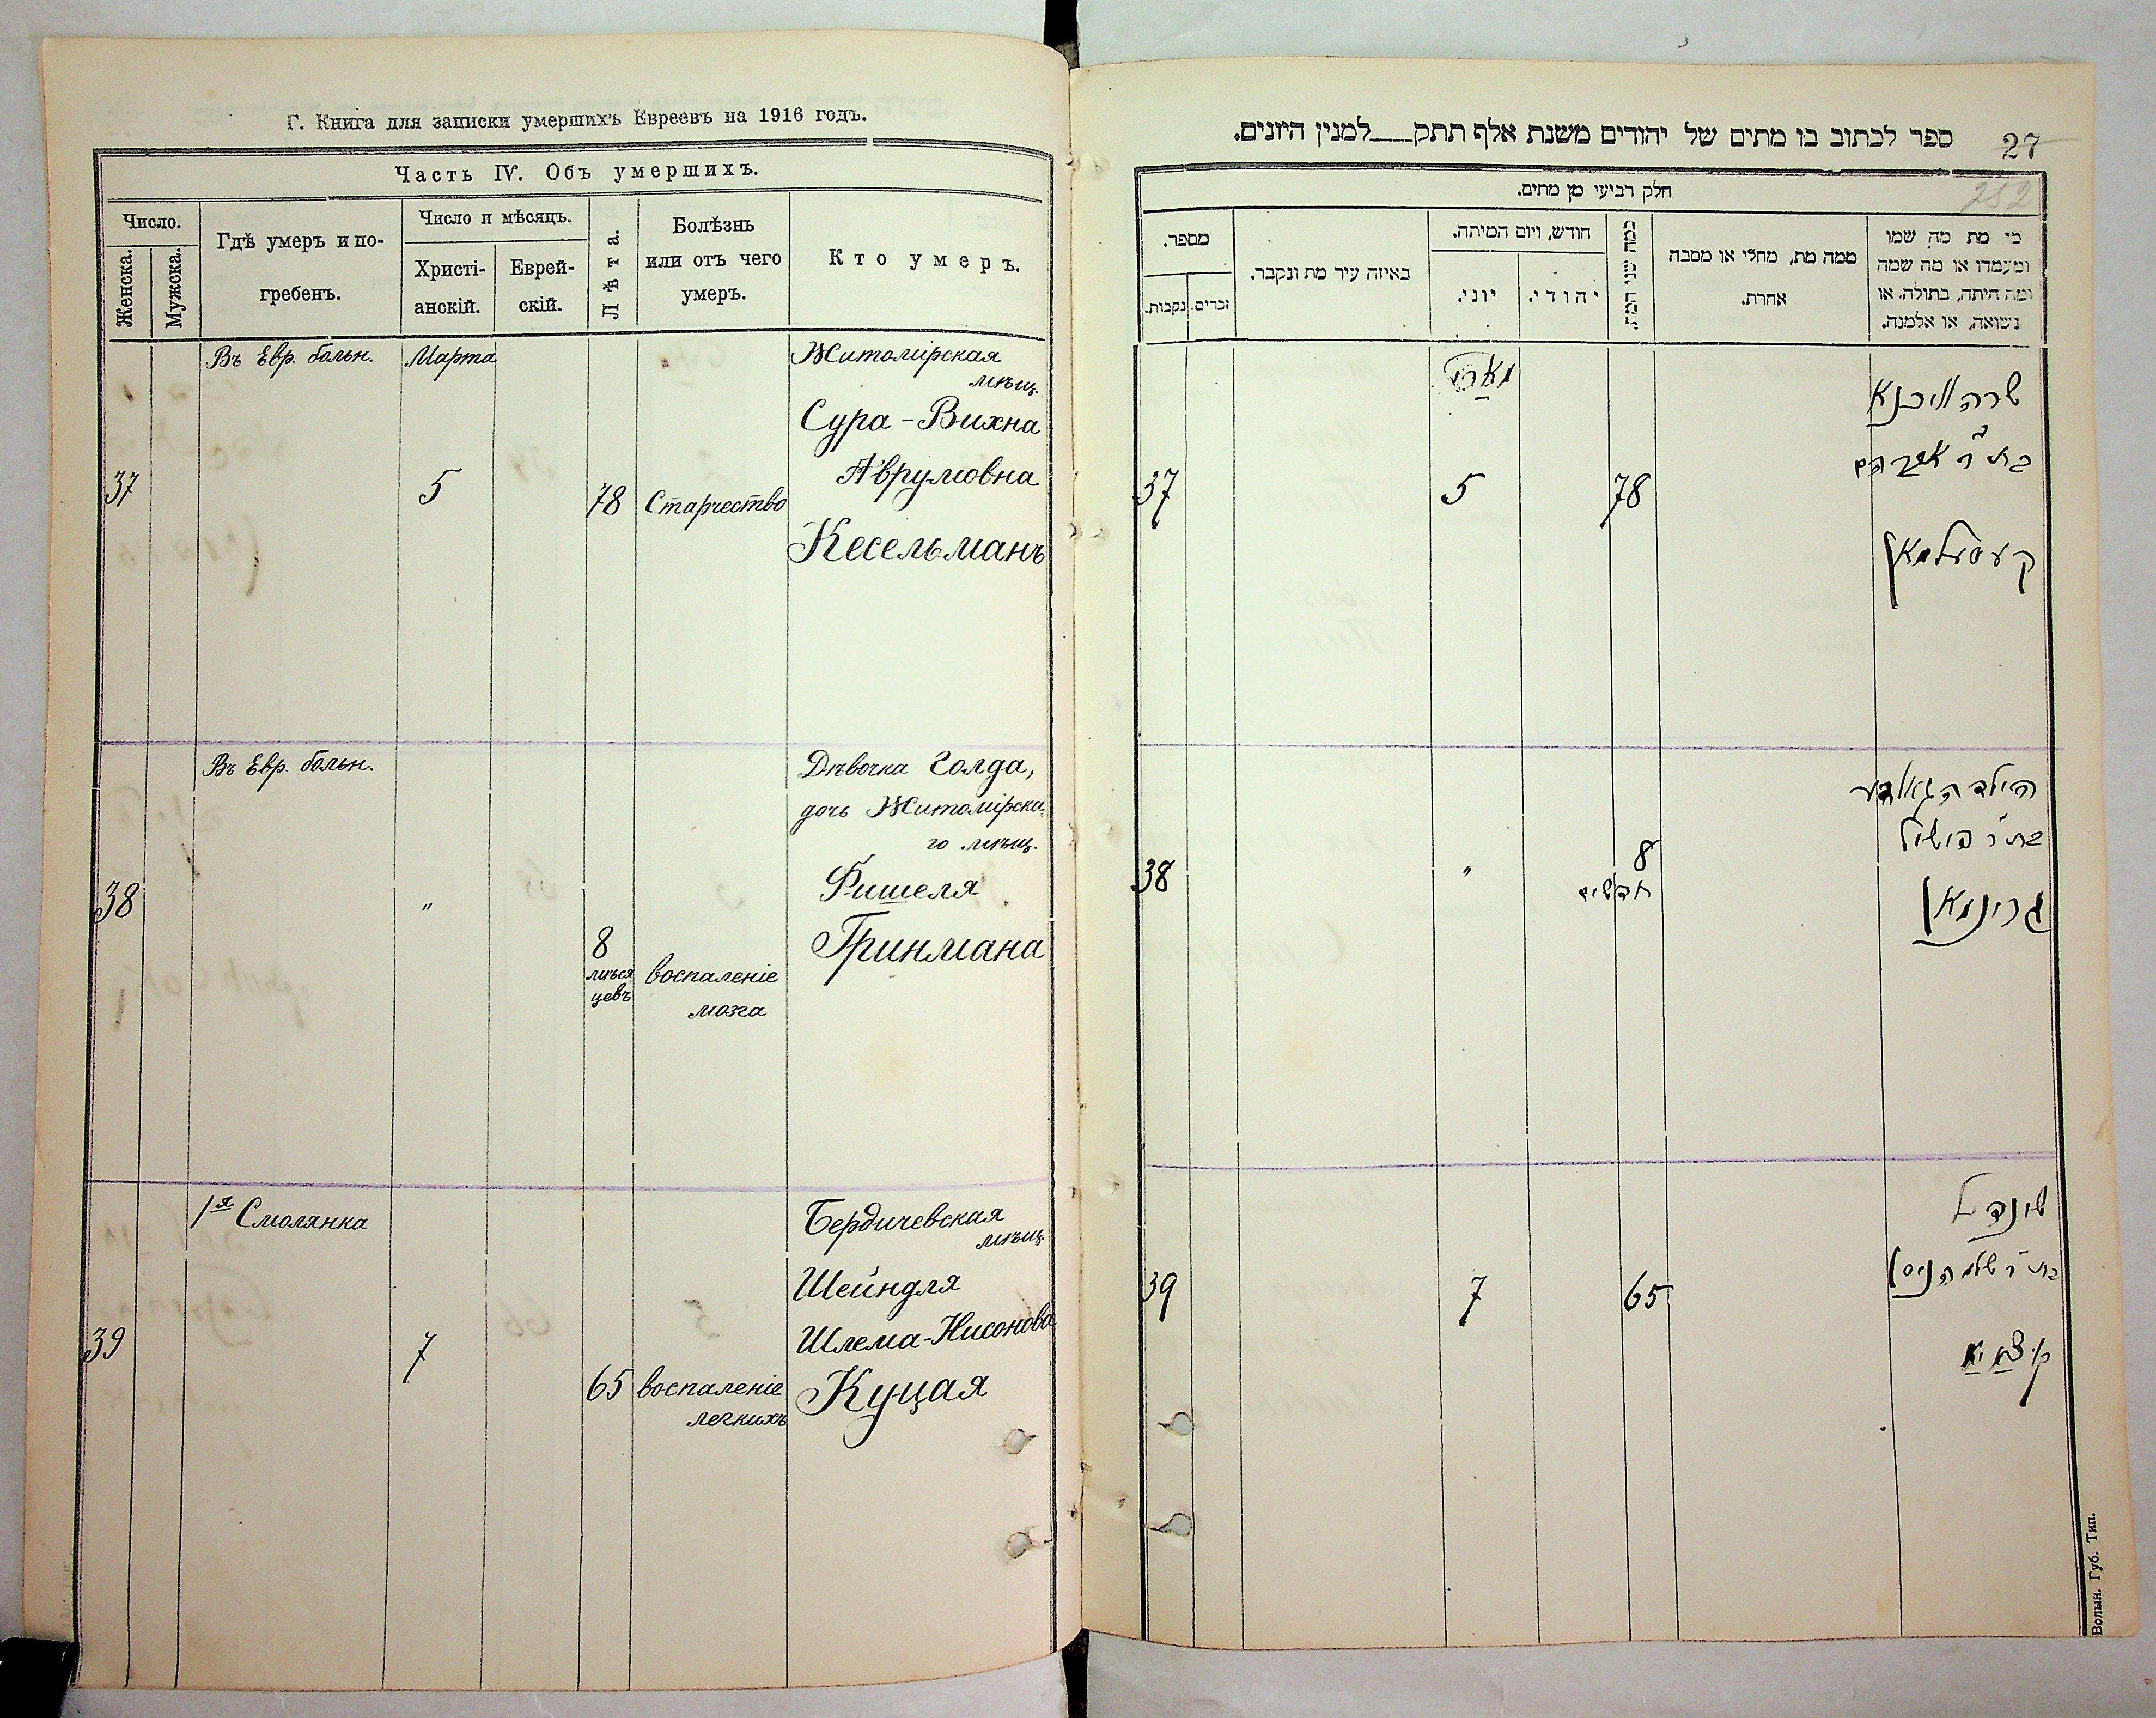 Г. Книга для записки умершихъ Евреевъ на 1916 годъ.
Часть IV. Объ умершихъ.
Число.
Женска.
Мужска.
Гдѣ умеръ и по-
гребенъ.
Число и мѣсяцъ.
Христі-
анскій.
Еврей-
скій.
Лѣта.
Болѣзнь
или отъ чего
умеръ.
Кто умеръ.
37
Въ Евр. больн.
Марта
5
78
Старчество
Житомірская
мѣщ.
Сура-Вихна
Аврумовна
Кесельманъ
38
Въ Евр. больн.
"
8
мѣся
цевъ
воспаленіе
мозга
Дѣвочка Голда,
дочь Житомірска-
го мѣщ.
Фишеля
Гринмана
39
1я Смолянка
7
65
воспаленіе
легкихъ
Бердичевская
мѣщ.
Шейндля
Шлема-Нисонова
Куцая
ספר לכתוב בו מתים של יהודים משנת אלף תתק למנין היונים.
27
252
חלק רביעי מן מתים.
מי מת מה שמו
ומעמדו או מה שמה
ומה היתה, בתולה, או
נשואה, או אלמנה.
ממה מת, מחלי או מסבה
אחרת.
כמה שני המת
חודש, ויום המיתה.
יהודי.
יוני.
באיזה עיר מת ונקבר.
מספר.
זכרים.
נקבות.
שרה וויכנא
בת ר' אברהם
קעסעלמאן
78
מארט
5
37
הילדה גאלדע
בת ר' פישיל
גרינמאן
8
חדשים
"
38
שינדל
בת ר' שלמה ניסן
קוצאיא
65
7
39
Волын. Губ. Тип.